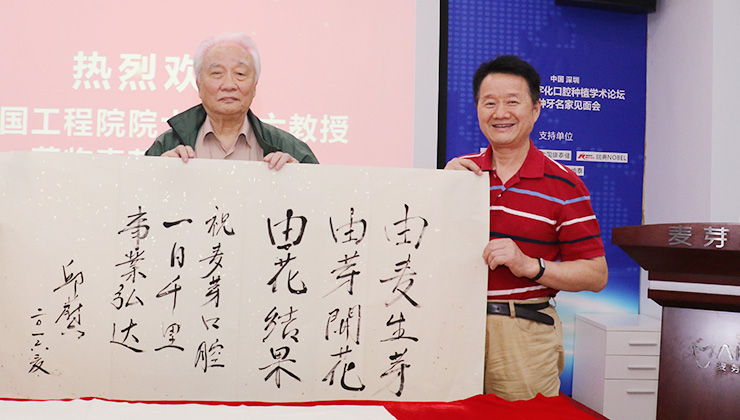 热烈欢
国工程院院
教授
中国 深圳
字化口腔种植学术论坛
种牙名家见面会
支持单位
国康泰健
瑞典NOBEL
由麦生芽
由芽開花
由花结果
祝麦芽口腔
一日千里
事業弘达
邱蔚六
二〇一六夏
麦芽